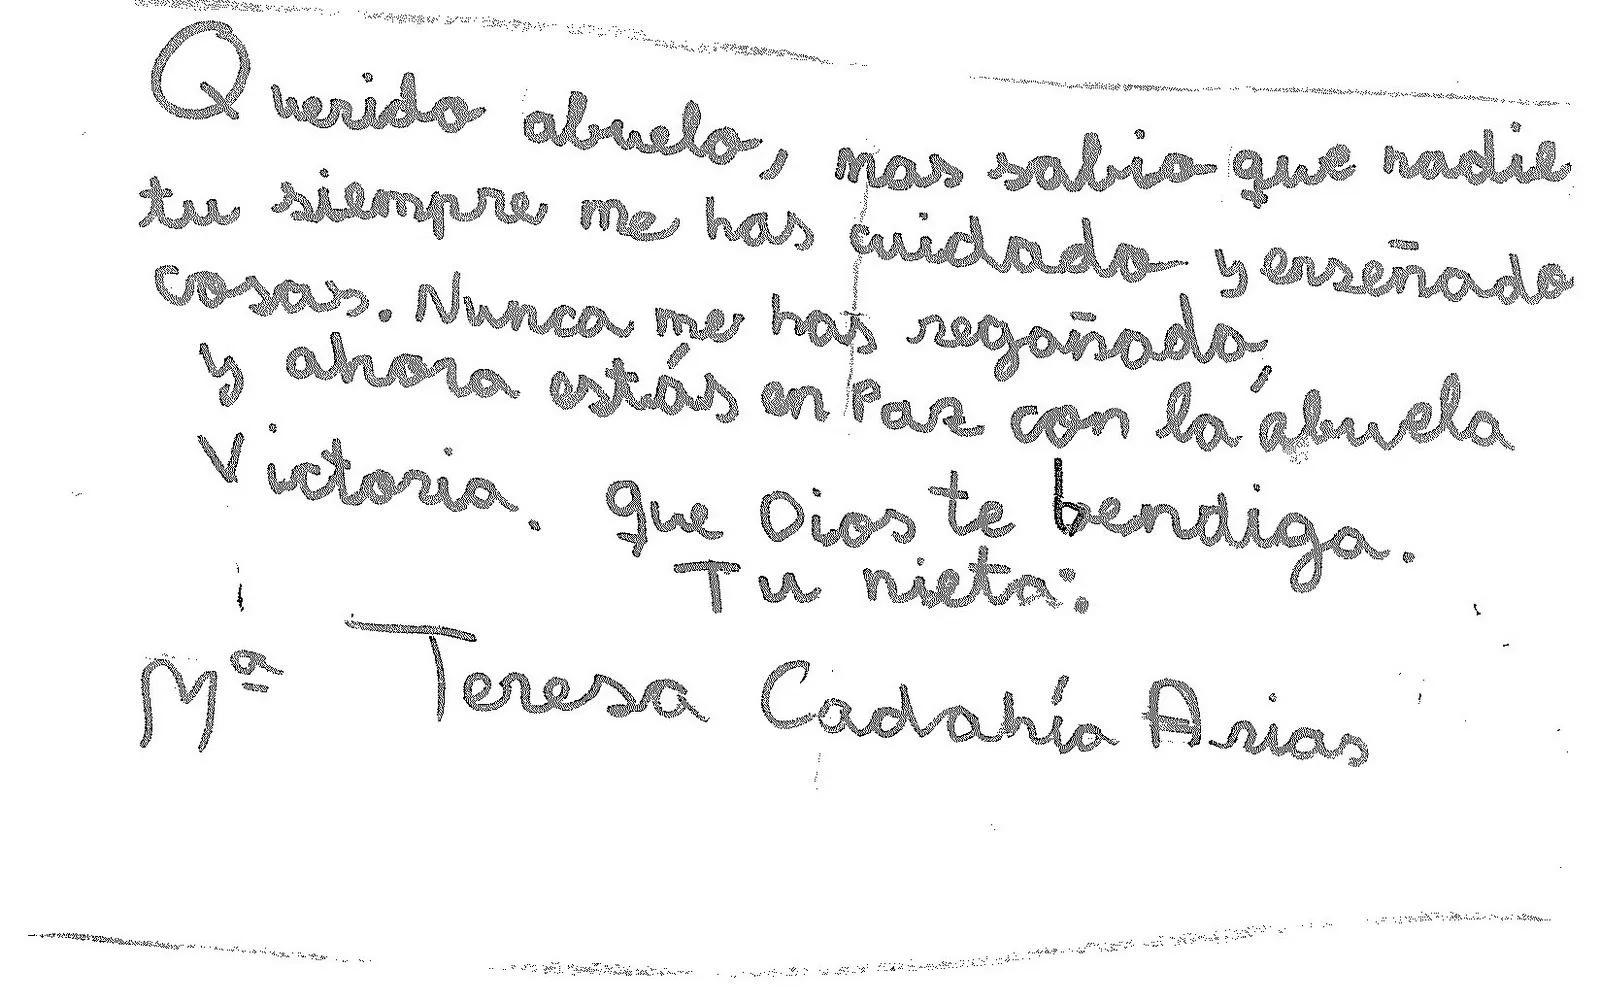 Querido abuelo, mas sabio que nadie
tu siempre me has cuidado y enseñado
cosas. Nunca me has regañado,
y ahora estás en Paz con la abuela
Victoria. Que Dios te bendiga.
Tu nieta:
Mª Teresa Cadahía Arias